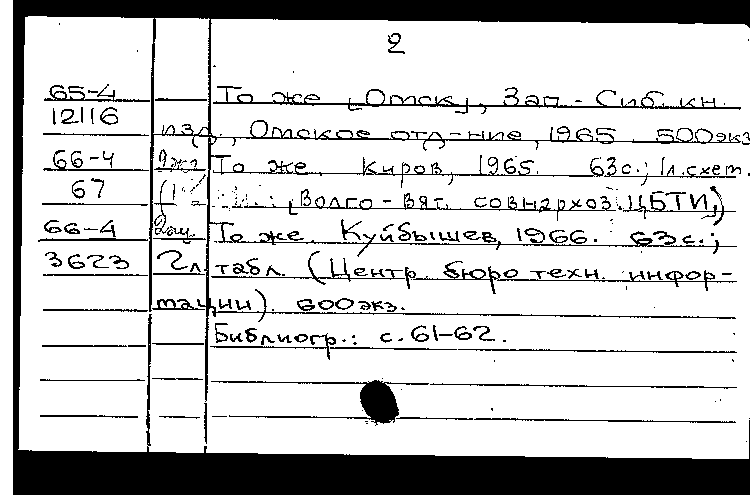 2
65-4 То же [Омск], Зап.-Сиб. кн.
12116 изд., Омское отд-ние, 1965. 500экз
66-4 То же. Киров, 1965. 63с.; 1л.схем.
67 [Волго-Вят. совнархоз. ЦБТИ])
66-4 То же. Куйбышев, 1966. 63с.;
3623 2л. табл. (Центр. бюро техн. инфор-
тации). 600экз.
Библиогр.: с. 61-62.